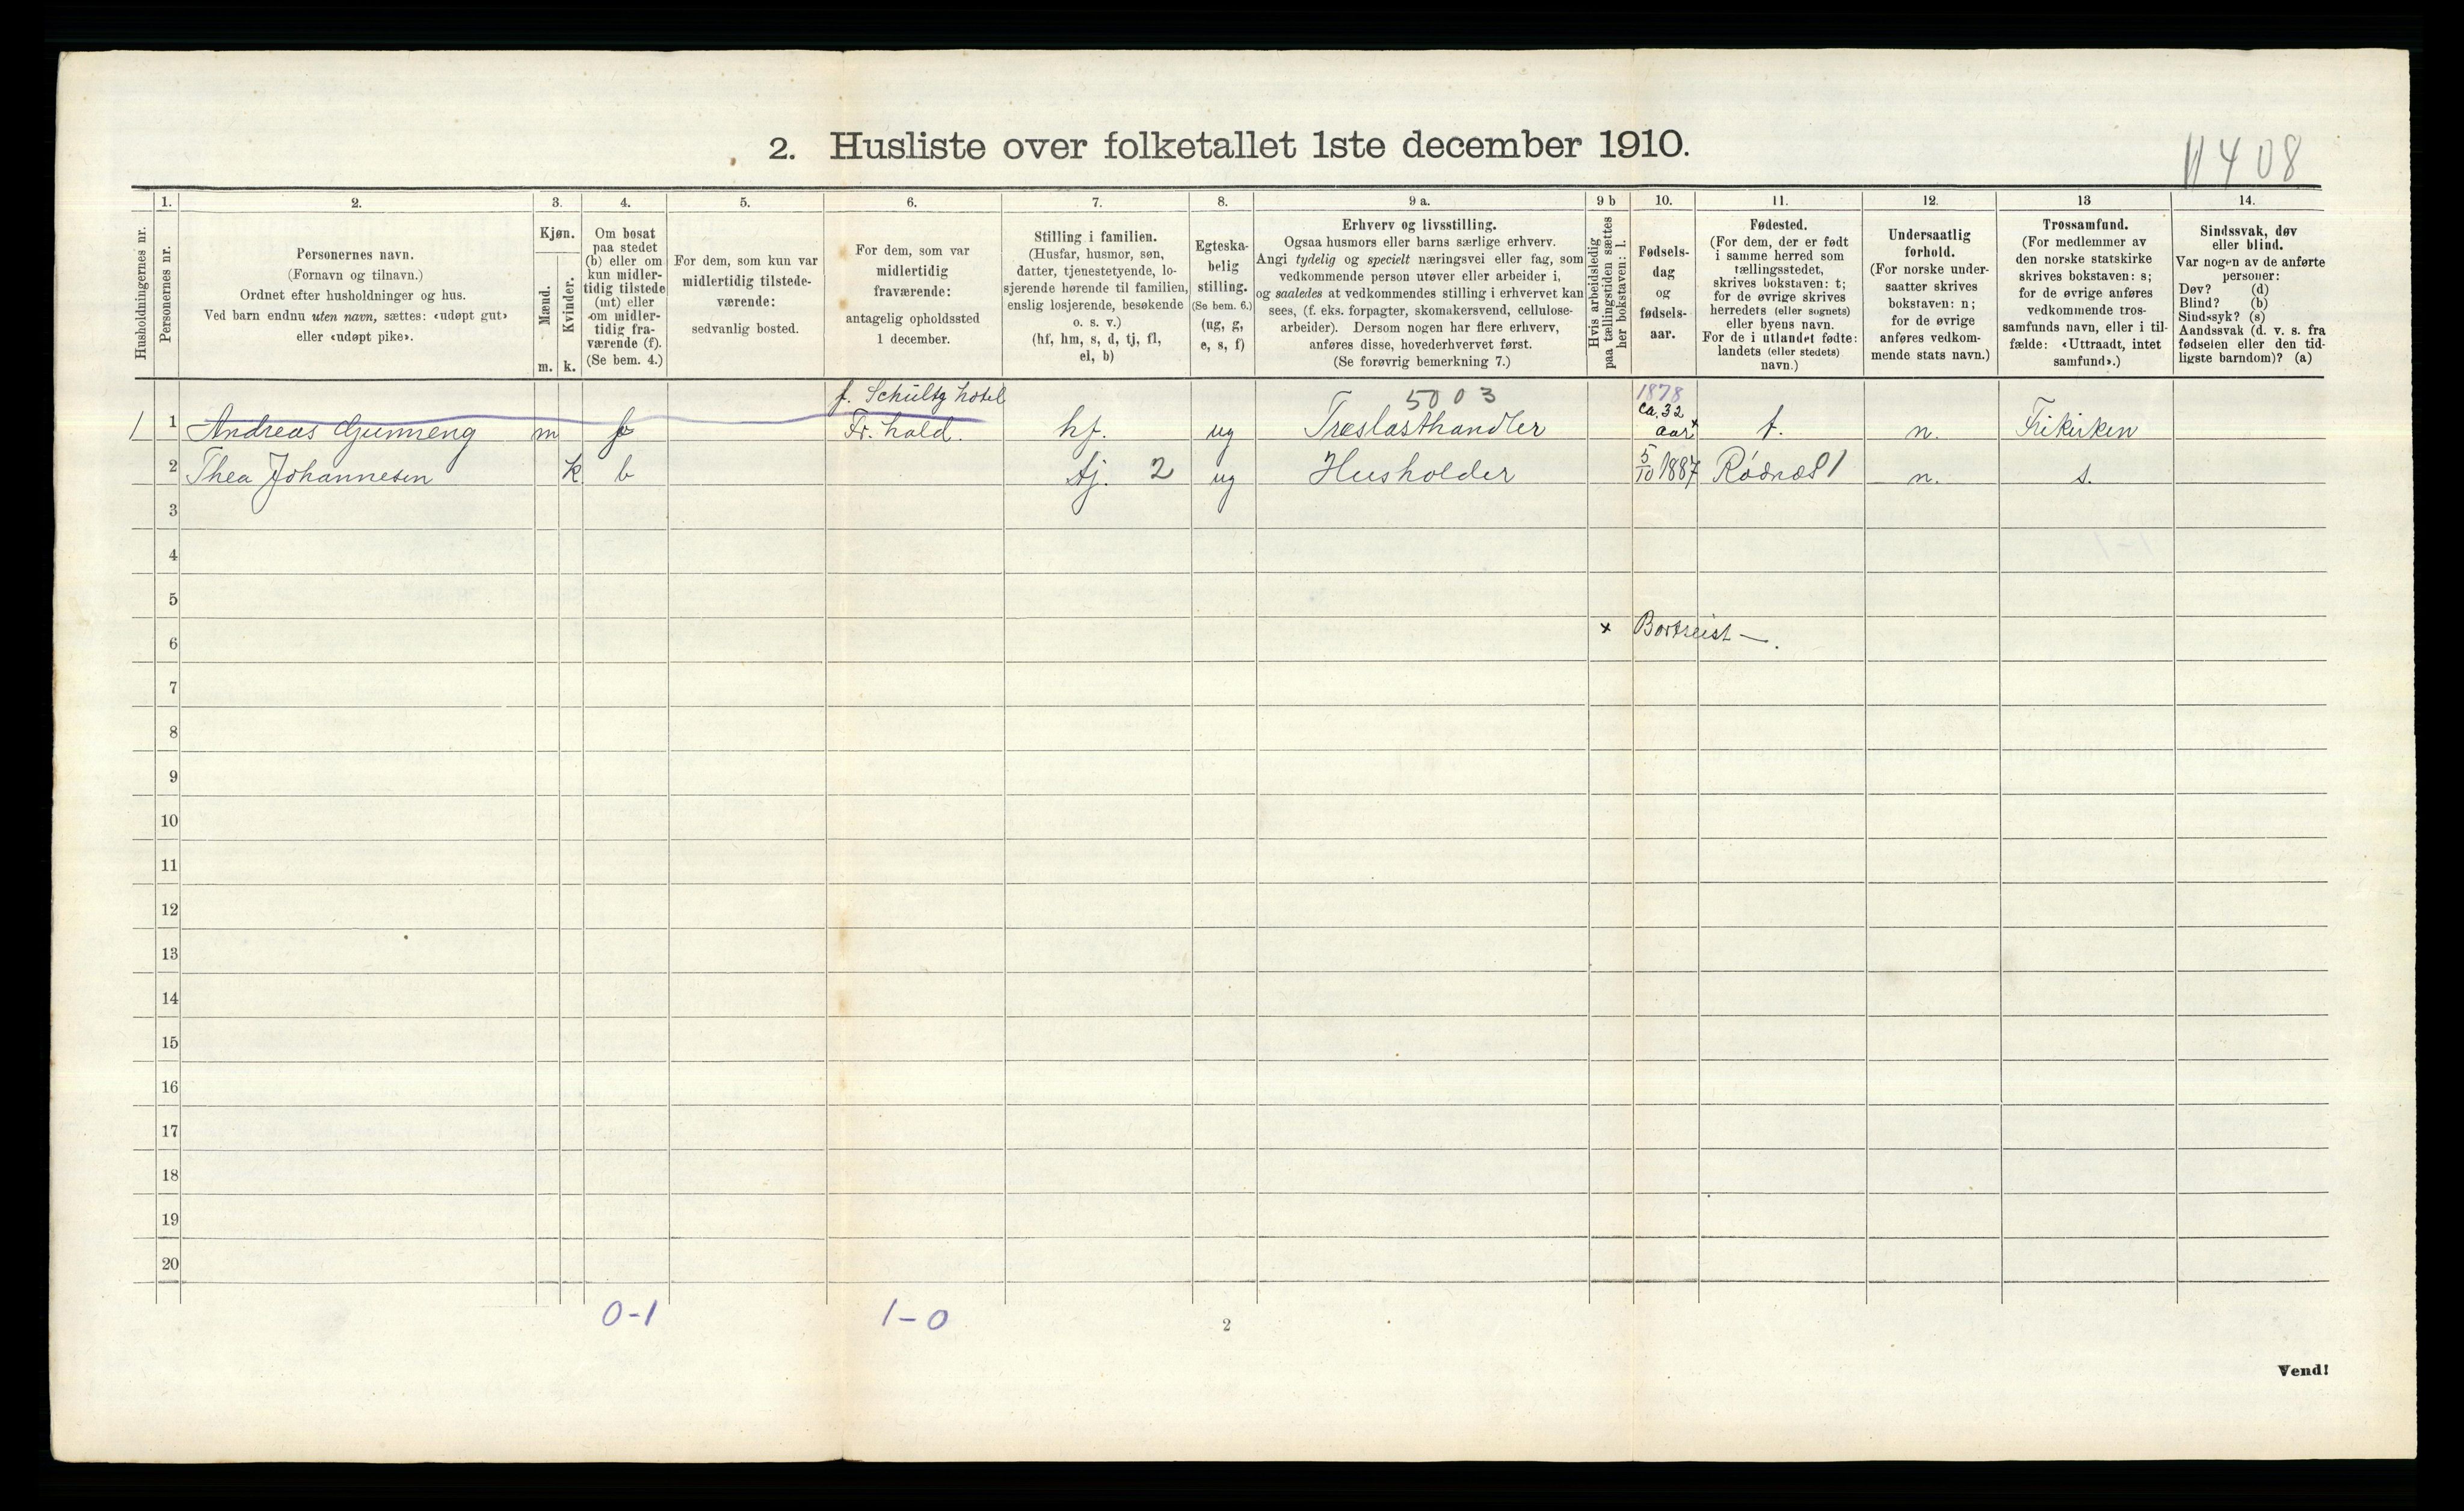 2. Husliste over folketallet 1ste december 1910.
11408
Husholdningernes nr.
1.
Personernes nr.
2.
Personernes navn.
(Fornavn og tilnavn.)
Ordnet efter husholdninger og hus.
Ved barn endnu uten navn, sættes: «udøpt gut»
eller «udøpt pike».
3.
Kjøn.
Mænd.
Kvinder.
m. k.
4.
Om bosat
paa stedet
(b) eller om
kun midler-
tidig tilstede
(mt) eller
om midler-
tidig fra-
værende (f).
(Se bem. 4.)
5.
For dem, som kun var
midlertidig tilstede-
værende:
sedvanlig bosted.
6.
For dem, som var
midlertidig
fraværende:
antagelig opholdssted
1 december.
7.
Stilling i familien.
(Husfar, husmor, søn,
datter, tjenestetyende, lo-
sjerende hørende til familien,
enslig losjerende, besøkende
o. s. v.)
(hf, hm, s, d, tj, fl,
el, b)
8.
Egteska-
belig
stilling.
(Se bem. 6.)
(ug, g,
e, s, f)
9 a.
Erhverv og livsstilling.
Ogsaa husmors eller barns særlige erhverv.
Angi tydelig og specielt næringsvei eller fag, som
vedkommende person utøver eller arbeider i,
og saaledes at vedkommendes stilling i erhvervet kan
sees, (f. eks. forpagter, skomakersvend, cellulose-
arbeider). Dersom nogen har flere erhverv,
anføres disse, hovederhvervet først.
(Se forøvrig bemerkning 7.)
9 b
Hvis arbeidsledig
paa tællingstiden sættes
her bokstaven: l.
10.
Fødsels-
dag
og
fødsels-
aar.
11.
Fødested.
(For dem, der er født
i samme herred som
tællingsstedet,
skrives bokstaven: t;
for de øvrige skrives
herredets (eller sognets)
eller byens navn.
For de i utlandet fødte:
landets (eller stedets)
navn.)
12.
Undersaatlig
forhold.
(For norske under-
saatter skrives
bokstaven: n;
for de øvrige
anføres vedkom-
mende stats navn.)
13
Trossamfund.
(For medlemmer av
den norske statskirke
skrives bokstaven: s;
for de øvrige anføres
vedkommende tros-
samfunds navn, eller i til-
fælde: «Uttraadt, intet
samfund».)
14.
Sindssvak, døv
eller blind.
Var nogen av de anførte
personer:
Døv? (d)
Blind? (b)
Sindssyk? (s)
Aandssvak (d. v. s. fra
fødselen eller den tid-
ligste barndom)? (a)
f. Schultz hotel 5003 1878
1 1 Andreas Gunneng m f Fr.hald. hf. ug Træslasthandler ca. 32 aar x t. n. Frikirken
2 Thea Johannesen k b tj. 2 ug Husholder 5/10 1887 Rødnæs 1 n. s.
3
4
5
6 x Bortreist —.
7
8
9
10
11
12
13
14
15
16
17
18
19
20
0-1 1-0
2
Vend!